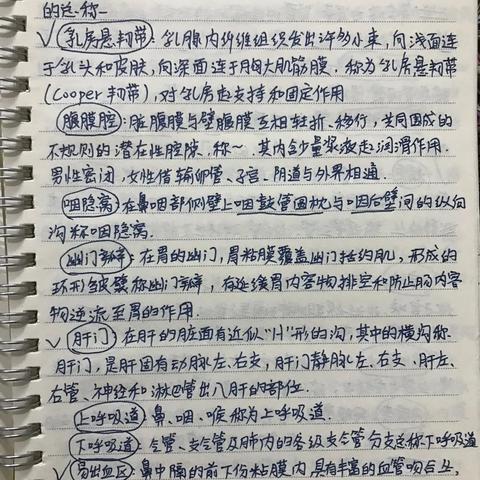 的总称~
√ 乳房悬韧带: 乳腺内纤维组织发出许多小束,向浅面连
于乳头和皮肤,向深面连于胸大肌筋膜.称为乳房悬韧带
(Cooper韧带),对乳房起支持和固定作用
腹膜腔:脏腹膜与壁腹膜互相转折、移行,共同围成的
不规则的潜在性腔隙.称~.其内含少量浆液起润滑作用.
男性密闭,女性借输卵管、子宫、阴道与外界相通.
咽隐窝:在鼻咽部侧壁上咽鼓管圆枕与咽后壁间的纵向
沟称咽隐窝.
幽门瓣:在胃的幽门,胃粘膜覆盖幽门括约肌,形成的
环形皱襞称幽门瓣,有延缓胃内容物排空和防止肠内容
物逆流至胃的作用.
√ 肝门:在肝的脏面有近似"H"形的沟,其中的横沟称
肝门,是肝固有动脉左、右支,肝门静脉左、右支、肝左、
右管、神经和淋巴管出入肝的部位.
上呼吸道:鼻、咽、喉称为上呼吸道.
下呼吸道:气管、支气管及肺内的各级支气管分支总称下呼吸道
√ 易出血区:鼻中隔的前下份粘膜内具有丰富的血管吻合丛,